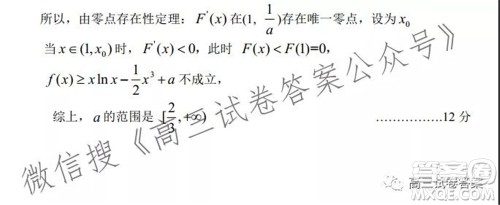 所以，由零点存在性定理：F'(x)在(1, 1/a)存在唯一零点，设为x₀
当x∈(1,x₀)时，F'(x)<0，此时 F(x)<F(1)=0,
f(x)≥x ln x−1/2x³+a 不成立，
综上，a的范围是 [2/3,+∞) ................12 分
微信搜《高三试卷答案公众号》
高三试卷答案